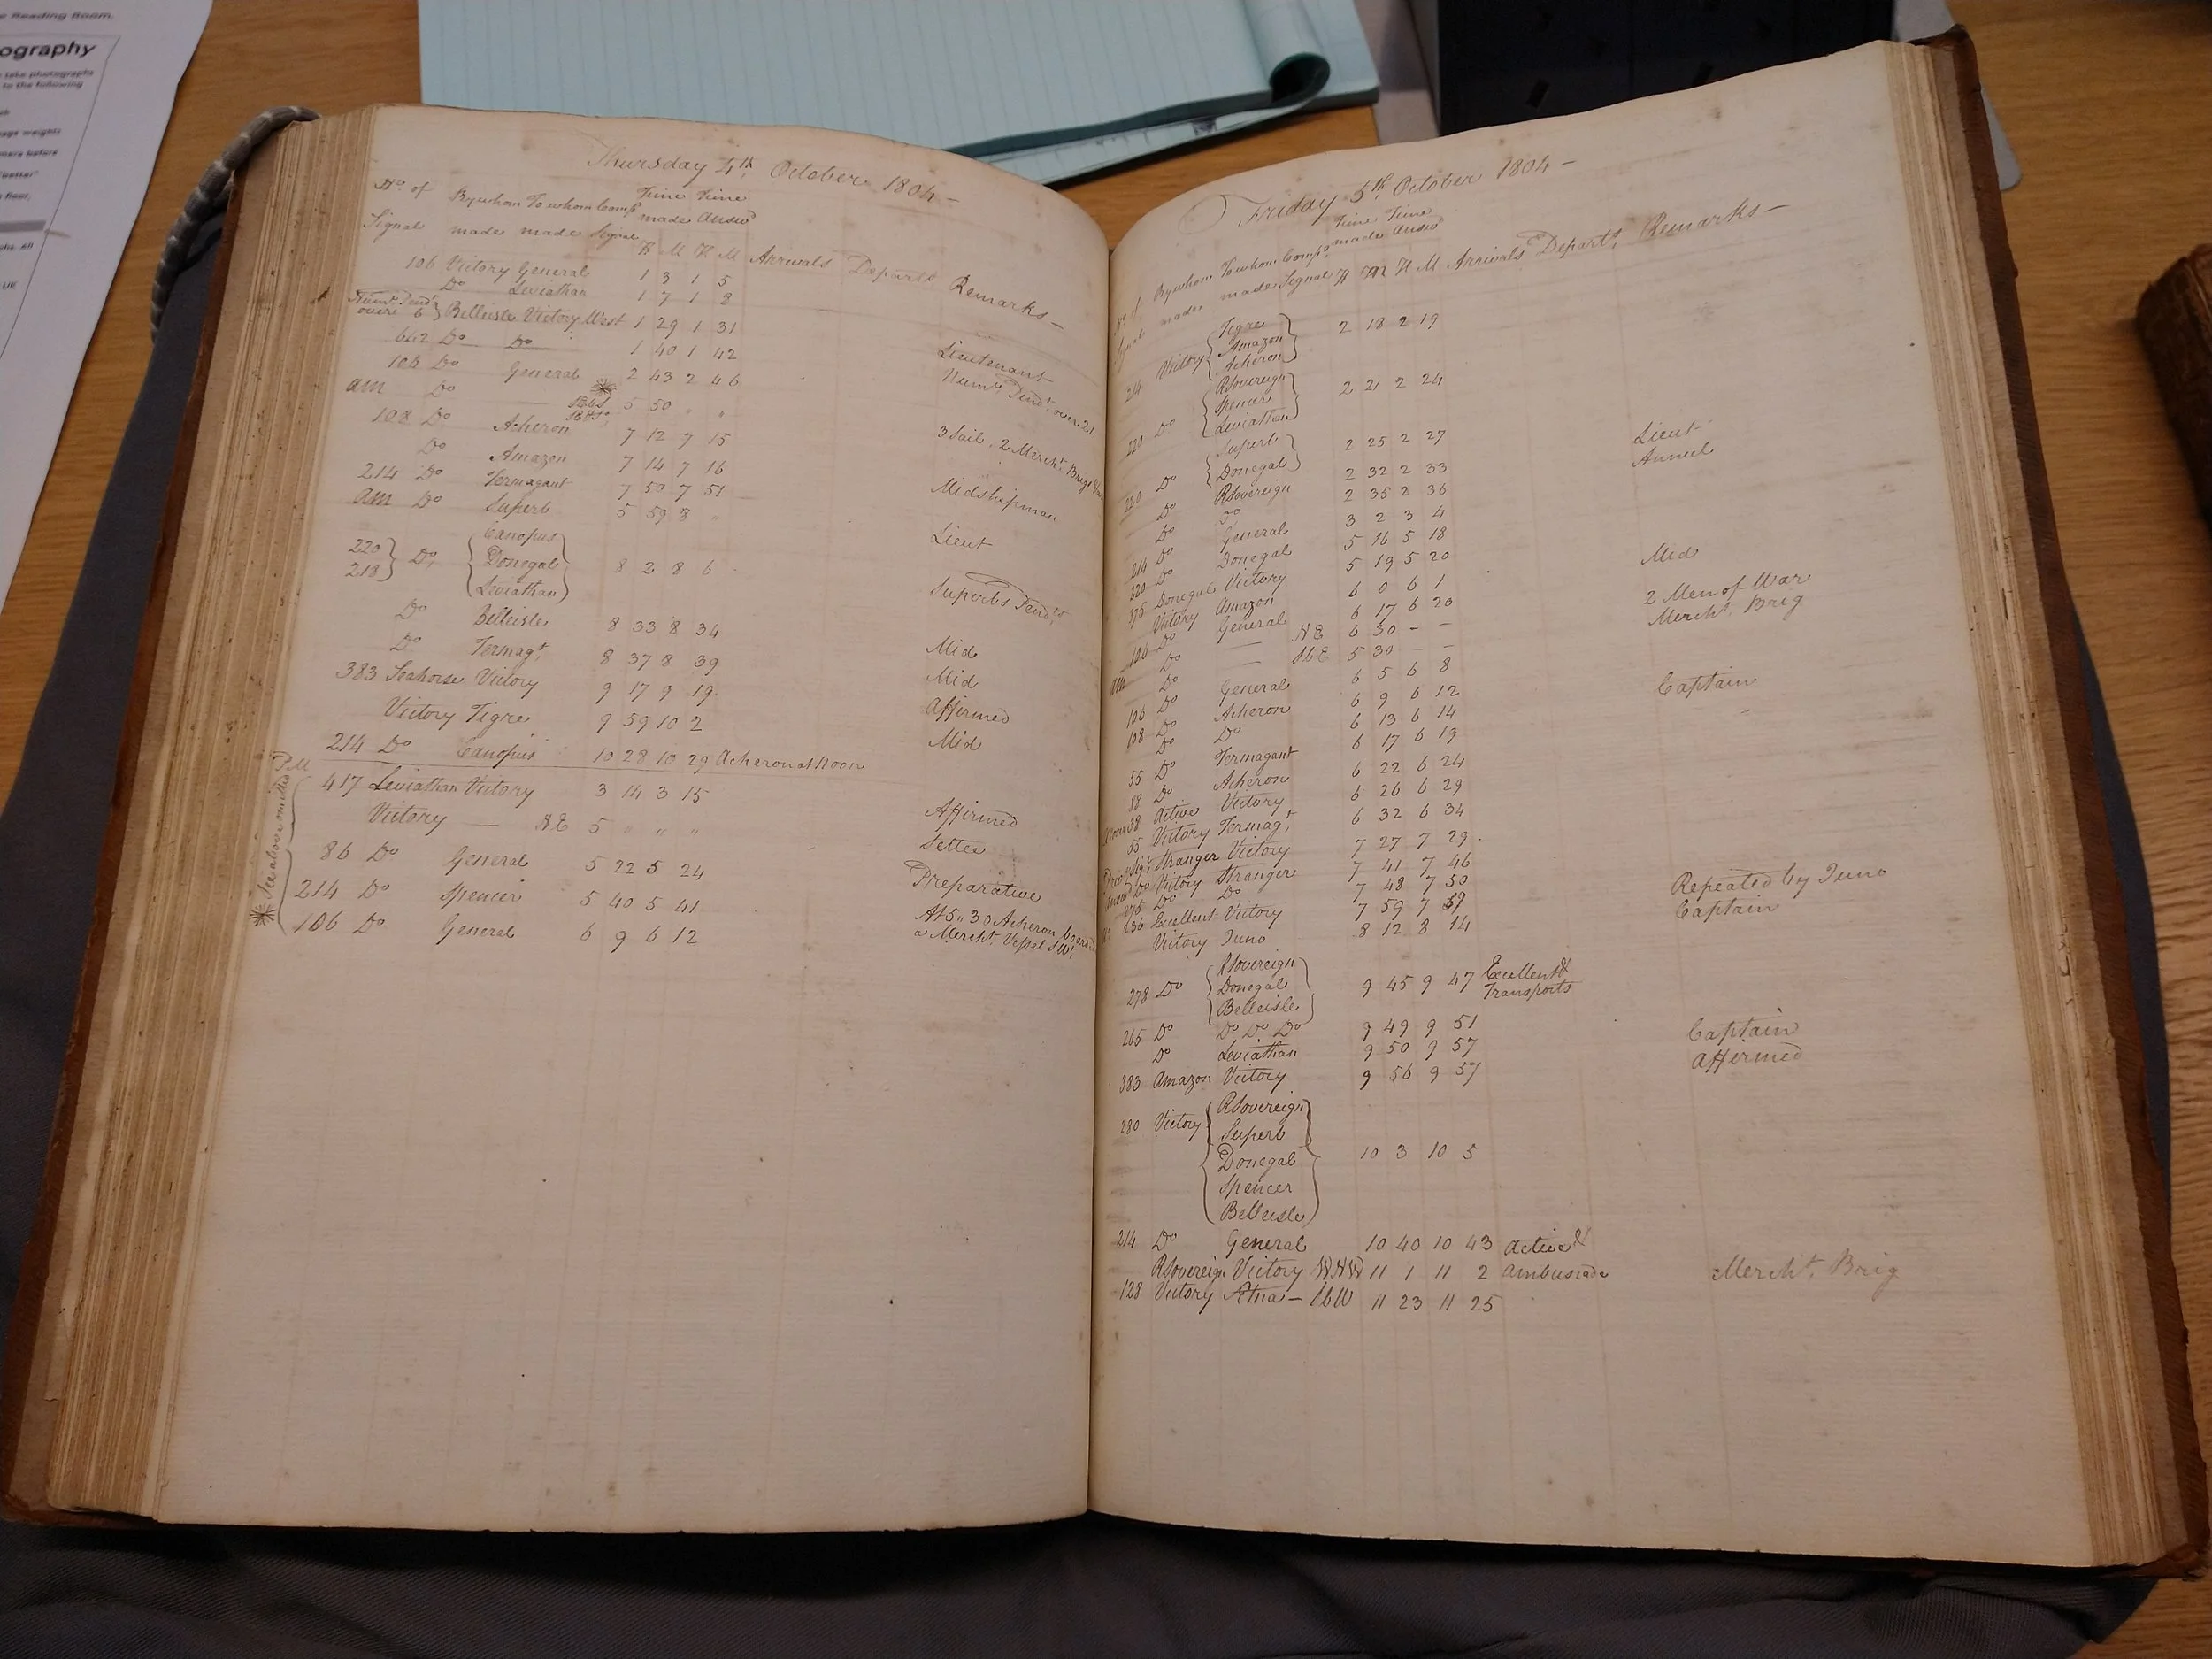 e Reading Room.
ography
take photographs
to the following
age weights
mera before
"better"
floor,
ghs. All
UK
Thursday 4th October 1804 –
No. of By whom To whom Comps Time Time
Signal made made Signal made Answd
H M H M Arrivals Departs Remarks –
106 Victory General 1 3 1 5
Do Leviathan 1 7 1 8 Lieutenant
Numl Pendts over 6 } Belleisle Victory West 1 29 1 31 Numl Pendt over 21
642 Do Do 1 40 1 42
106 Do General 2 43 2 46
am Do — 5 50 " " 3 Sail, 2 Mercht Brigs
108 Do Acheron 7 12 7 15
Do Amazon 7 14 7 16 Midshipman
214 Do Termagant 7 50 7 51
am Do Superb 5 59 8 " Lieut
220 218 } Do { Canopus Donegal Leviathan } 8 2 8 6 Superbs Pendts
Do Belleisle 8 33 8 34 Mid
Do Termagt 8 37 8 39 Mid
383 Seahorse Victory 9 17 9 19 Affirmed
Victory Tigre 9 59 10 2 Mid
214 Do Canopus 10 28 10 29 Acheron at Noon
PM
417 Leviathan Victory 3 14 3 15 Affirmed
Victory — NE 5 " " " Settee
86 Do General 5 22 5 24 Preparative
214 Do Spencer 5 40 5 41 At 5,,30 Acheron board
106 Do General 6 9 6 12 a Mercht Vessel SWt
See above omitted
Friday 5th October 1804 –
No. of By whom To whom Comps Time Time
Signal made made Signal made Answd
H M H M Arrivals Departs Remarks –
214 Victory { Tigre Amazon Acheron } 2 18 2 19
220 Do { RSovereign Spencer Leviathan } 2 21 2 24
220 Do { Superb Donegal } 2 25 2 27
Do RSovereign 2 32 2 33 Lieut
Do Do 2 35 2 36 Annul
Do General 3 2 3 4
214 Do Donegal 5 16 5 18
220 Donegal Victory 5 19 5 20
375 Victory Amazon 6 0 6 1 Mid
106 Do General 6 17 6 20
Do — NE 6 30 – – 2 Men of War
am Do — SbE 5 30 – – Mercht Brig
106 Do General 6 5 6 8
108 Do Acheron 6 9 6 12
Do Do 6 13 6 14 Captain
55 Do Termagant 6 17 6 19
88 Do Acheron 6 22 6 24
38 Active Victory 6 26 6 29
55 Victory Termagt 6 32 6 34
Stranger Victory 7 27 7 29
Do Victory Stranger 7 41 7 46
Do Do 7 48 7 50
236 Excellent Victory 7 59 7 59 Repeated by Juno
Victory Juno 8 12 8 14 Captain
278 Do { RSovereign Donegal Belleisle } 9 45 9 47 Excellent & Transports
265 Do Do Do Do 9 49 9 51
Do Leviathan 9 50 9 57 Captain
383 Amazon Victory 9 56 9 57 Affirmed
280 Victory { RSovereign Superb Donegal Spencer Belleisle } 10 3 10 5
214 Do General 10 40 10 43 Active &
RSovereign Victory WNW 11 1 11 2 Ambuscade Mercht Brig
128 Victory Ætna – WbW 11 23 11 25